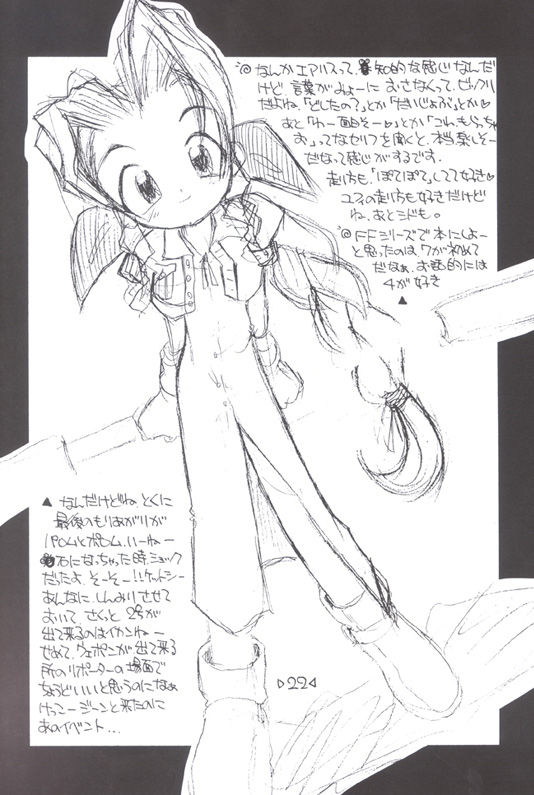 ◎なんかエアリスって、知的な感じなんだ
けど、言葉がみょーにおさなくって、ビックリ
だよね、「どしたの？」とか「だいじょぶ」とか♡
あと「わー面白そー♡」とか「コレ、もらっちゃ
お」ってなセリフを聞くと、本当楽しそー
だなって感じがするです。
走り方も、「ぽてぽて」してて好き♡
ユフィの走り方も好きだけど
ね、あとシドも。
◎FFシリーズで本にしよー
と思ったのは7が初めて
だなぁ、お話的には
4が好き
▲
▲なんだけどね、とくに
最後のもりあがりが
パロムとポロム、いーねー
石になっちゃった時、ショック
だったよ、そーそー!!ケットシー
あんなに、しんみりさせて
おいて、さくっと2号が
出て来るのはイカンねー
せめて、ウェポンが出て来る
所のリポーターの場面で
ちょうどいいと思うのになぁ
けっこージーンと来たのに
あのイベント...
▷22◁